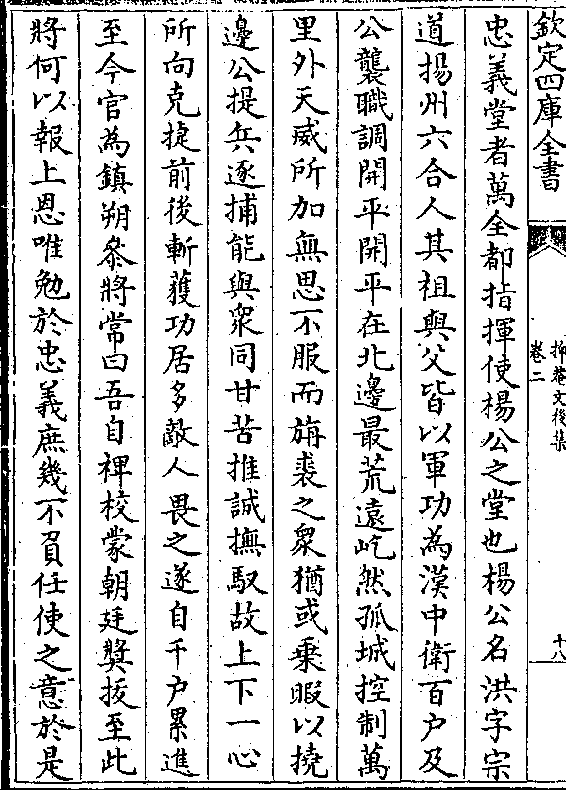 欽定四庫全書
抑菴文後集
卷二
十八
忠義堂者萬全都指揮使楊公之堂也楊公名洪字宗
道揚州六合人其祖與父皆以軍功為漢中衛百户及
公襲職調開平開平在北邊最荒遠屹然孤城控制萬
里外天威所加無思不服而旃裘之衆猶或乗暇以撓
邊公提兵逐捕能與衆同甘苦推誠撫馭故上下一心
所向克捷前後斬獲功居多敵人畏之遂自千户累進
至今官為鎮朔叅將常曰吾自裨校蒙朝廷奬拔至此
將何以報上恩唯勉於忠義庶幾不負任使之意於是